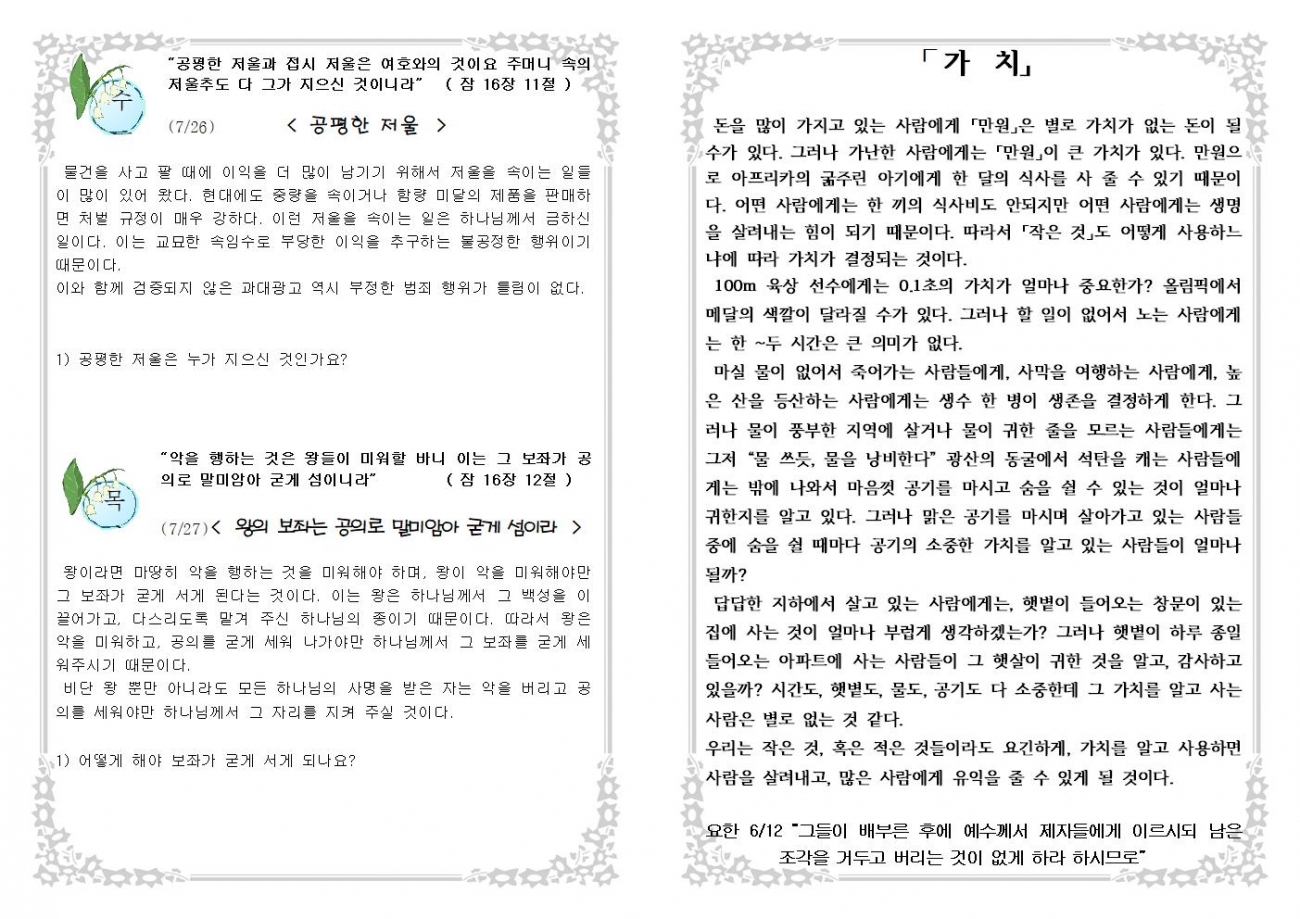 수
“공평한 저울과 접시 저울은 여호와의 것이요 주머니 속의
저울추도 다 그가 지으신 것이니라” ( 잠 16장 11절 )
(7/26) < 공평한 저울 >
물건을 사고 팔 때에 이익을 더 많이 남기기 위해서 저울을 속이는 일들
이 많이 있어 왔다. 현대에도 중량을 속이거나 함량 미달의 제품을 판매하
면 처벌 규정이 매우 강하다. 이런 저울을 속이는 일은 하나님께서 금하신
일이다. 이는 교묘한 속임수로 부당한 이익을 추구하는 불공정한 행위이기
때문이다.
이와 함께 검증되지 않은 과대광고 역시 부정한 범죄 행위가 틀림이 없다.
1) 공평한 저울은 누가 지으신 것인가요?
목
“악을 행하는 것은 왕들이 미워할 바니 이는 그 보좌가 공
의로 말미암아 굳게 섬이니라” ( 잠 16장 12절 )
(7/27)< 왕의 보좌는 공의로 말미암아 굳게 섬이라 >
왕이라면 마땅히 악을 행하는 것을 미워해야 하며, 왕이 악을 미워해야만
그 보좌가 굳게 서게 된다는 것이다. 이는 왕은 하나님께서 그 백성을 이
끌어가고, 다스리도록 맡겨 주신 하나님의 종이기 때문이다. 따라서 왕은
악을 미워하고, 공의를 굳게 세워 나가야만 하나님께서 그 보좌를 굳게 세
워주시기 때문이다.
비단 왕 뿐만 아니라도 모든 하나님의 사명을 받은 자는 악을 버리고 공
의를 세워야만 하나님께서 그 자리를 지켜 주실 것이다.
1) 어떻게 해야 보좌가 굳게 서게 되나요?
「가 치」
돈을 많이 가지고 있는 사람에게 「만원」은 별로 가치가 없는 돈이 될
수가 있다. 그러나 가난한 사람에게는 「만원」이 큰 가치가 있다. 만원으
로 아프리카의 굶주린 아기에게 한 달의 식사를 사 줄 수 있기 때문이
다. 어떤 사람에게는 한 끼의 식사비도 안되지만 어떤 사람에게는 생명
을 살려내는 힘이 되기 때문이다. 따라서 「작은 것」도 어떻게 사용하느
냐에 따라 가치가 결정되는 것이다.
100m 육상 선수에게는 0.1초의 가치가 얼마나 중요한가? 올림픽에서
메달의 색깔이 달라질 수가 있다. 그러나 할 일이 없어서 노는 사람에게
는 한 ~두 시간은 큰 의미가 없다.
마실 물이 없어서 죽어가는 사람들에게, 사막을 여행하는 사람에게, 높
은 산을 등산하는 사람에게는 생수 한 병이 생존을 결정하게 한다. 그
러나 물이 풍부한 지역에 살거나 물이 귀한 줄을 모르는 사람들에게는
그저 “물 쓰듯, 물을 낭비한다” 광산의 동굴에서 석탄을 캐는 사람들에
게는 밖에 나와서 마음껏 공기를 마시고 숨을 쉴 수 있는 것이 얼마나
귀한지를 알고 있다. 그러나 맑은 공기를 마시며 살아가고 있는 사람들
중에 숨을 쉴 때마다 공기의 소중한 가치를 알고 있는 사람들이 얼마나
될까?
답답한 지하에서 살고 있는 사람에게는, 햇볕이 들어오는 창문이 있는
집에 사는 것이 얼마나 부럽게 생각하겠는가? 그러나 햇볕이 하루 종일
들어오는 아파트에 사는 사람들이 그 햇살이 귀한 것을 알고, 감사하고
있을까? 시간도, 햇볕도, 물도, 공기도 다 소중한데 그 가치를 알고 사는
사람은 별로 없는 것 같다.
우리는 작은 것, 혹은 적은 것들이라도 요긴하게, 가치를 알고 사용하면
사람을 살려내고, 많은 사람에게 유익을 줄 수 있게 될 것이다.
요한 6/12 “그들이 배부른 후에 예수께서 제자들에게 이르시되 남은
조각을 거두고 버리는 것이 없게 하라 하시므로”